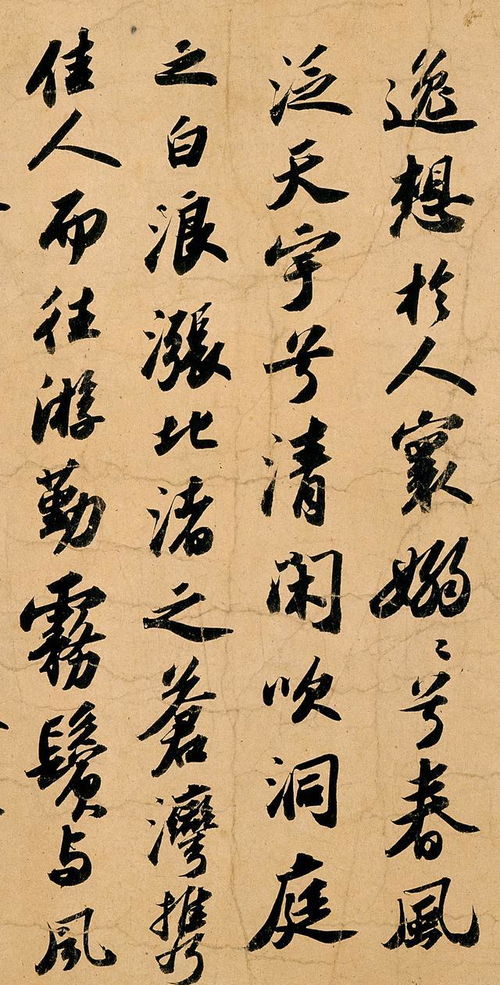 逸想於人寰嫋〻兮春風
泛天宇兮清閑吹洞庭
之白浪漲北渚之蒼灣攜
佳人而往游勤霧鬢与風